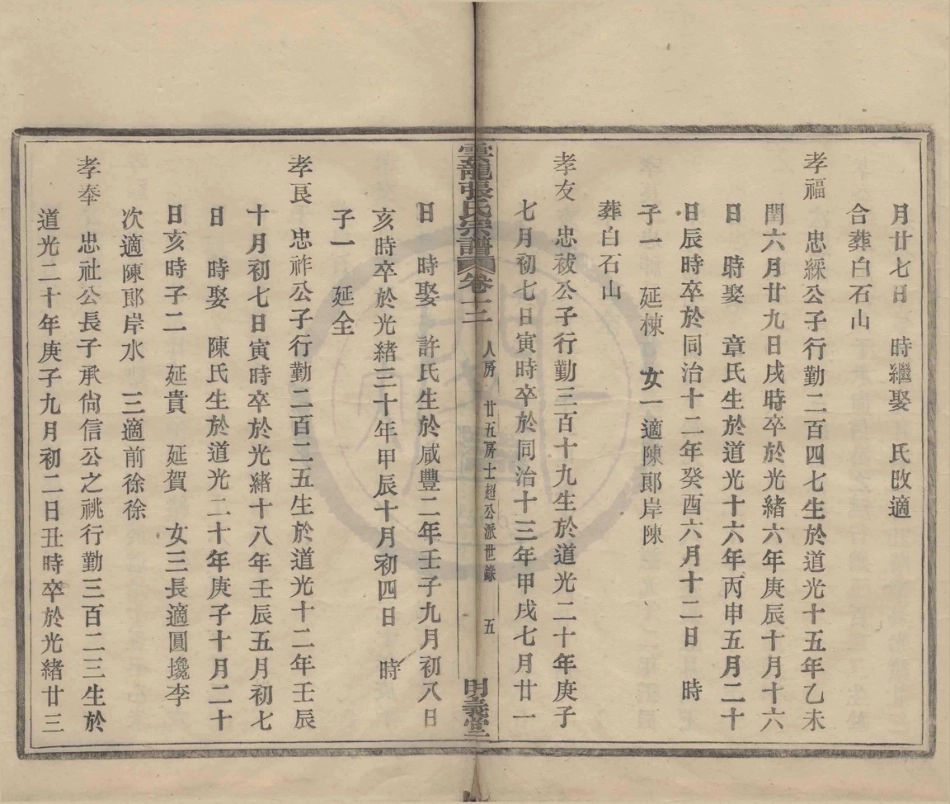 月廿七日　時繼娶　氏改適
合葬白石山
孝福　忠綵公子行勤二百四七生於道光十五年乙未
閏六月廿九日戌時卒於光緒六年庚辰十月十六
日　時娶　章氏生於道光十六年丙申五月二十
日辰時卒於同治十二年癸酉六月十二日　時
子一　延棟　女一適陳郎岸陳
葬白石山
孝友　忠祓公子行勤三百十九生於道光二十年庚子
七月初七日寅時卒於同治十三年甲戌七月廿一
雲龍張氏宗譜　卷十二　人房　廿五房士超公派世錄　五　明義堂
日　時娶　許氏生於咸豐二年壬子九月初八日
亥時卒於光緒三十年甲辰十月初四日　時
子一　延全
孝良　忠祚公子行勤二百二五生於道光十二年壬辰
十月初七日寅時卒於光緒十八年壬辰五月初七
日　時娶　陳氏生於道光二十年庚子十月二十
日亥時子二　延貴　延賀　女三長適圓墻李
次適陳郎岸水　三適前徐徐
孝奉　忠社公長子承尙信公之祧行勤三百二三生於
道光二十年庚子九月初二日丑時卒於光緒廿三